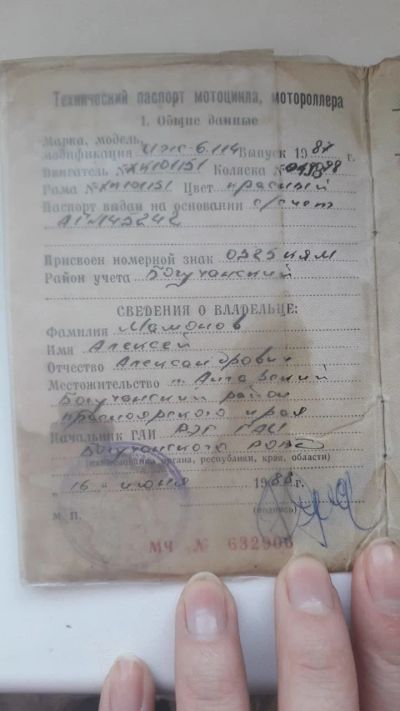 Технический паспорт мотоцикла, мотороллера
1. Общие данные
Марка, модель,
модификация ИЖ-6.114 Выпуск 1987 г.
Двигатель № Коляска №
Рама № Цвет красный
Паспорт выдан на основании с/счет
Присвоен номерной знак 0325 КЯМ
Район учета Богучанский
СВЕДЕНИЯ О ВЛАДЕЛЬЦЕ:
Фамилия Мамонов
Имя Алексей
Отчество Александрович
Местожительство п. Ангарский
Богучанский район
Красноярского края
Начальник ГАИ РЭГ ГАИ
Богучанского РОВД
(наименование органа, республики, края, области)
„16" июня 1988 г.
М. П. (подпись)
МЧ № 632906